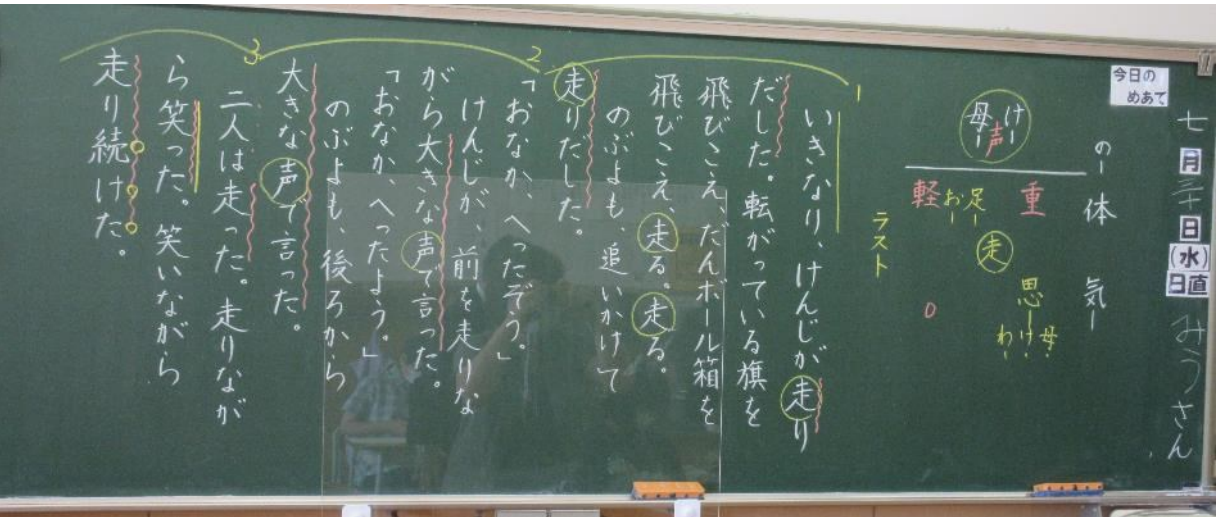 七月三十日(水)日直 みうさん
今日の
めあて
の一体 気一
け一
声
母一
重
軽
足一
お一
走
思一
母
け
わ
0
ラスト
1
いきなり、けんじが走り
だした。転がっている旗を
飛びこえ、だんボール箱を
飛びこえ、走る。走る。
のぶよも、追いかけて
走りだした。
2
「おなか、へったぞう。」
けんじが、前を走りな
がら大きな声で言った。
「おなか、へったよう。」
のぶよも、後ろから
大きな声で言った。
3
二人は走った。走りなが
ら笑った。笑いながら
走り続けた。